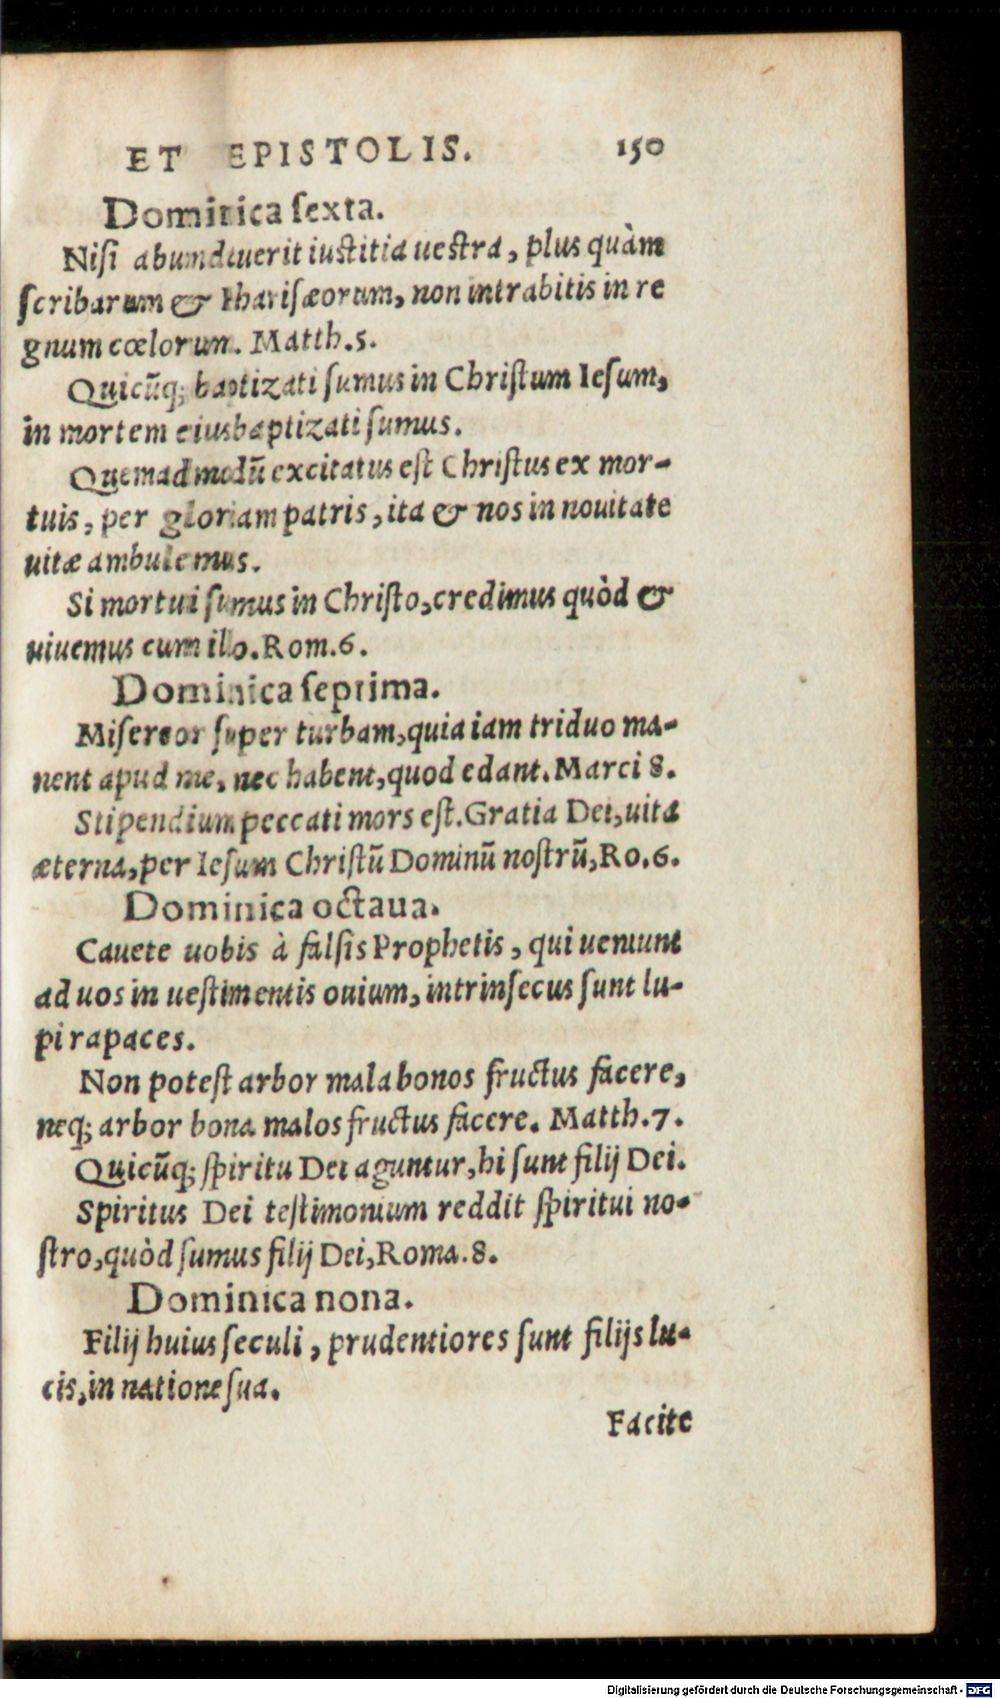 ET EPISTOLIS. 150
Dominica ſexta.
Niſi abundauerit iuſtitia ueſtra, plus quàm
ſcribarum & Phariſæorum, non intrabitis in re
gnum cœlorum. Matth.5.
Quicūq; baptizati ſumus in Chriſtum Ieſum,
in mortem eius baptizati ſumus.
Quemadmodū excitatus eſt Chriſtus ex mor-
tuis, per gloriam patris, ita & nos in nouitate
uitæ ambulemus.
Si mortui ſumus in Chriſto, credimus quòd &
uiuemus cum illo. Rom.6.
Dominica ſeptima.
Miſereor ſuper turbam, quia iam triduo ma-
nent apud me, nec habent, quod edant. Marci 8.
Stipendium peccati mors eſt. Gratia Dei, uita
æterna, per Ieſum Chriſtū Dominū noſtrū, Ro.6.
Dominica octaua.
Cauete uobis à falſis Prophetis, qui ueniunt
ad uos in ueſtimentis ouium, intrinſecus ſunt lu-
pi rapaces.
Non poteſt arbor mala bonos fructus facere,
neq; arbor bona malos fructus facere. Matth.7.
Quicūq; ſpiritu Dei aguntur, hi ſunt filij Dei.
Spiritus Dei teſtimonium reddit ſpiritui no-
ſtro, quòd ſumus filij Dei, Roma.8.
Dominica nona.
Filij huius ſeculi, prudentiores ſunt filijs lu-
cis, in natione ſua.
Facite
Digitalisierung gefördert durch die Deutsche Forschungsgemeinschaft - DFG